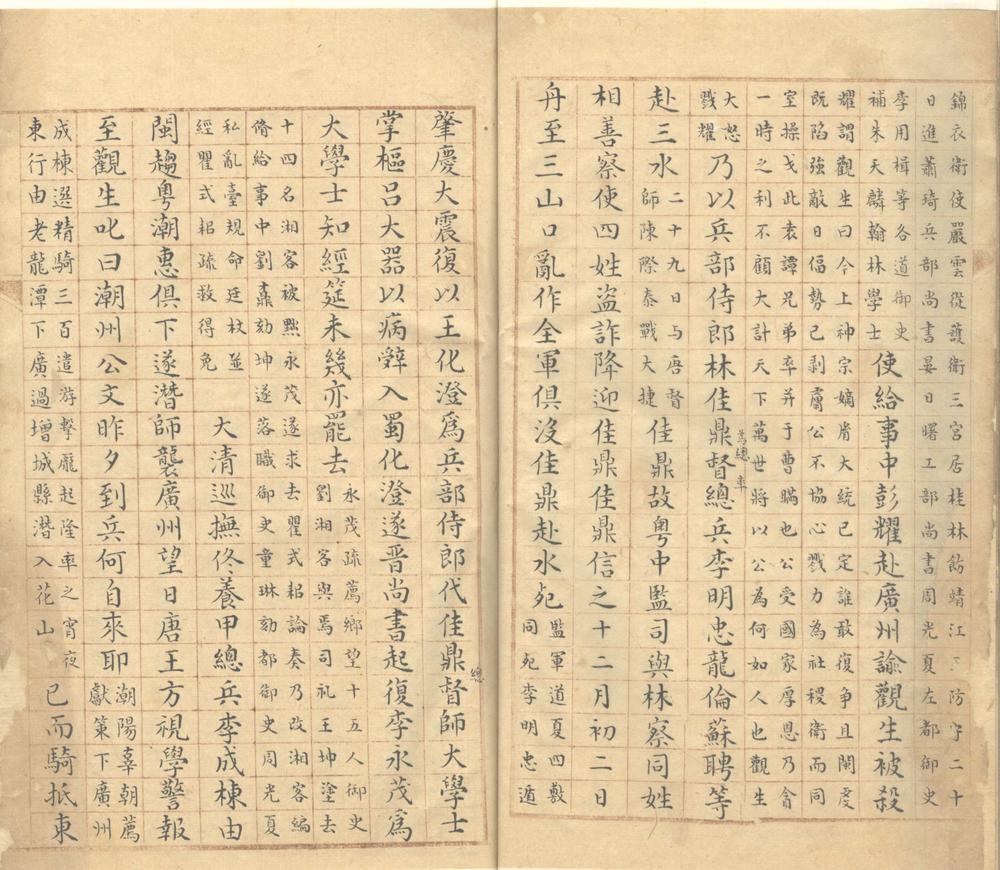 錦衣衛使嚴雲從護衛三宮居桂林飭靖江防守二十
日進蕭琦兵部尚書晏日曙工部尚書周光夏左都御史
李用楫等各道御史
補朱天麟翰林學士
使給事中彭耀赴廣州諭觀生被殺
耀謂觀生曰今上神宗嫡胄大統已定誰敢復爭且閩虔
既陷強敵日偪勢已剥膚公不協心戮力為社稷衛而同
室操戈此袁譚兄弟卒并于曹瞞也公受國家厚恩乃貪
一時之利不顧大計天下萬世將以公為何如人也觀生
大怒
戮耀
乃以兵部侍郎林佳鼎督總兵李明忠龍倫蘇聘等
為總率
赴三水
二十九日与唐督
師陳際泰戰大捷
佳鼎故粤中監司與林察同姓
相善察使四姓盜詐降迎佳鼎佳鼎信之十二月初二日
舟至三山口亂作全軍俱沒佳鼎赴水死
監軍道夏四敷
同死李明忠遁
肇慶大震復以王化澄爲兵部侍郎代佳鼎督師大學士
總
掌樞呂大器以病辭入蜀化澄遂晉尚書起復李永茂爲
大學士知經筵未幾亦罷去
永茂疏薦鄉望十五人御史
劉湘客與焉司礼王坤塗去
十四名湘客被黜永茂遂求去瞿式耜論奏乃改湘客編
脩給事中劉鼒劾坤遂落職御史童琳劾都御史周光夏
私亂臺規命廷杖並
經瞿式耜疏救得免
大清巡撫佟養甲總兵李成棟由
閩趨粤潮惠俱下遂潛師襲廣州望日唐王方視學警報
至觀生叱曰潮州公文昨夕到兵何自來耶
潮陽辜朝薦
獻策下廣州
成棟選精騎三百遣游擊龐起隆率之宵夜
東行由老龍潭下廣過增城縣潛入花山
已而騎抵東